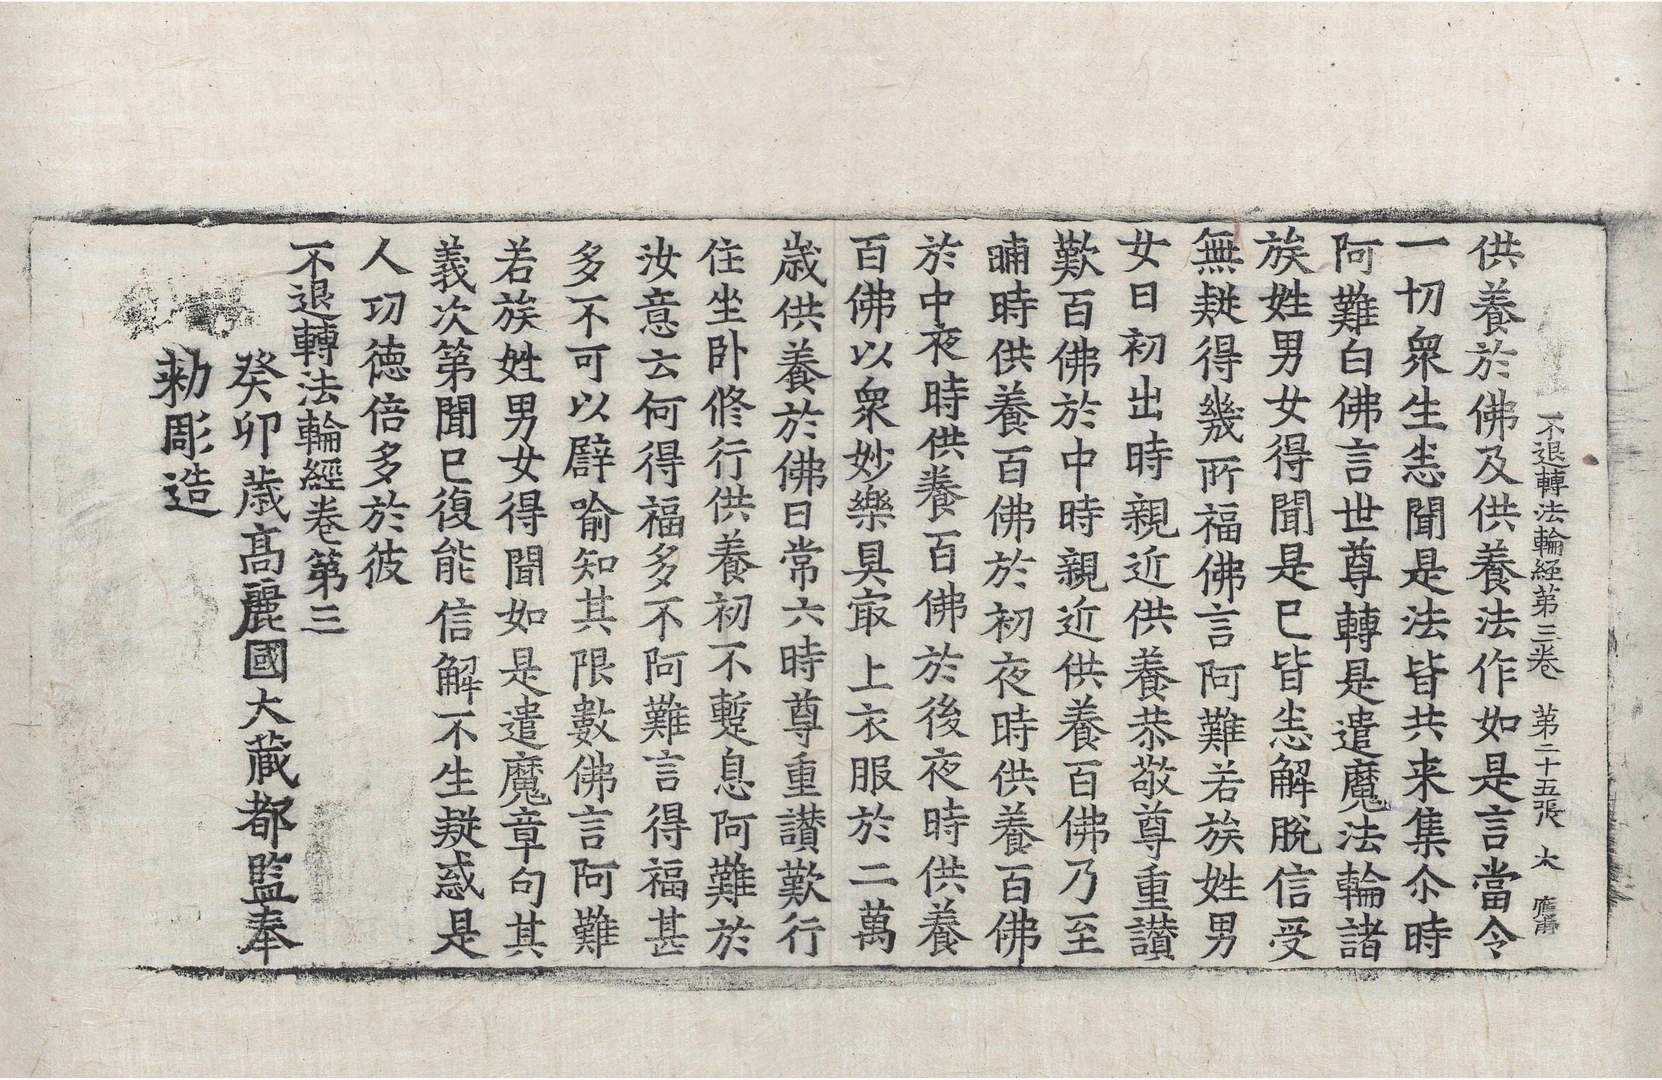 不退轉法輪経第三卷 第二十五張 大
供養於佛及供養法作如是言當令
一切衆生悉聞是法皆共来集尒時
阿難白佛言世尊轉是遣魔法輪諸
族姓男女得聞是已皆悉解脫信受
無疑得幾所福佛言阿難若族姓男
女日初出時親近供養恭敬尊重讚
歎百佛於中時親近供養百佛乃至
晡時供養百佛於初夜時供養百佛
於中夜時供養百佛於後夜時供養
百佛以衆妙樂具冣上衣服於二萬
歲供養於佛日常六時尊重讚歎行
住坐卧修行供養初不暫息阿難於
汝意云何得福多不阿難言得福甚
多不可以譬喻知其限數佛言阿難
若族姓男女得聞如是遣魔章句其
義次第聞已復能信解不生疑惑是
人功德倍多於彼
不退轉法輪經卷第三
癸卯歲高麗國大藏都監奉
勑彫造